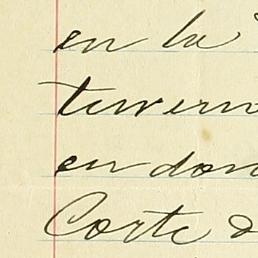 en la
tuvieron
en don
Corte d